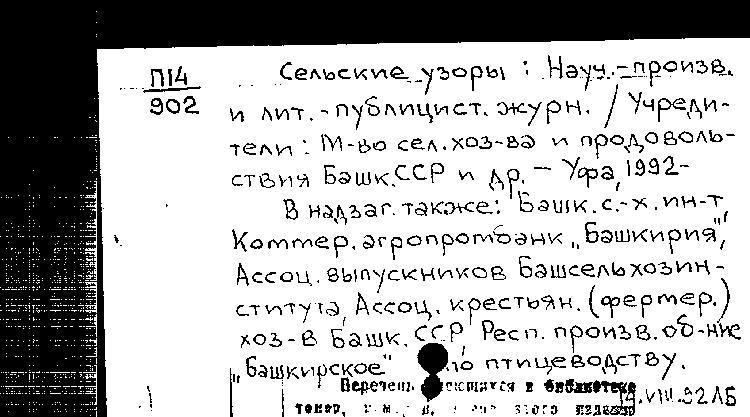 П14
902
Сельские узоры : Науч.-произв.
и лит.-публицист. журн. / Учреди-
тели : М-во сел. хоз-ва и продоволь-
ствия Башк. ССР и др. - Уфа, 1992-
В надзаг. также: Башк. с.-х. ин-т,
Коммер. агропромбанк „Башкирия",
Ассоц. выпускников Башсельхозин-
ститута, Ассоц. крестьян. (фермер.)
хоз-в Башк. ССР, Респ. произв. об-ние
„Башкирское" по птицеводству.
Перечень имеющихся в библиотеке
этого
.VIII.92 ЛБ